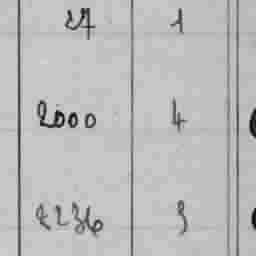 27 1
2000 4
2236 3